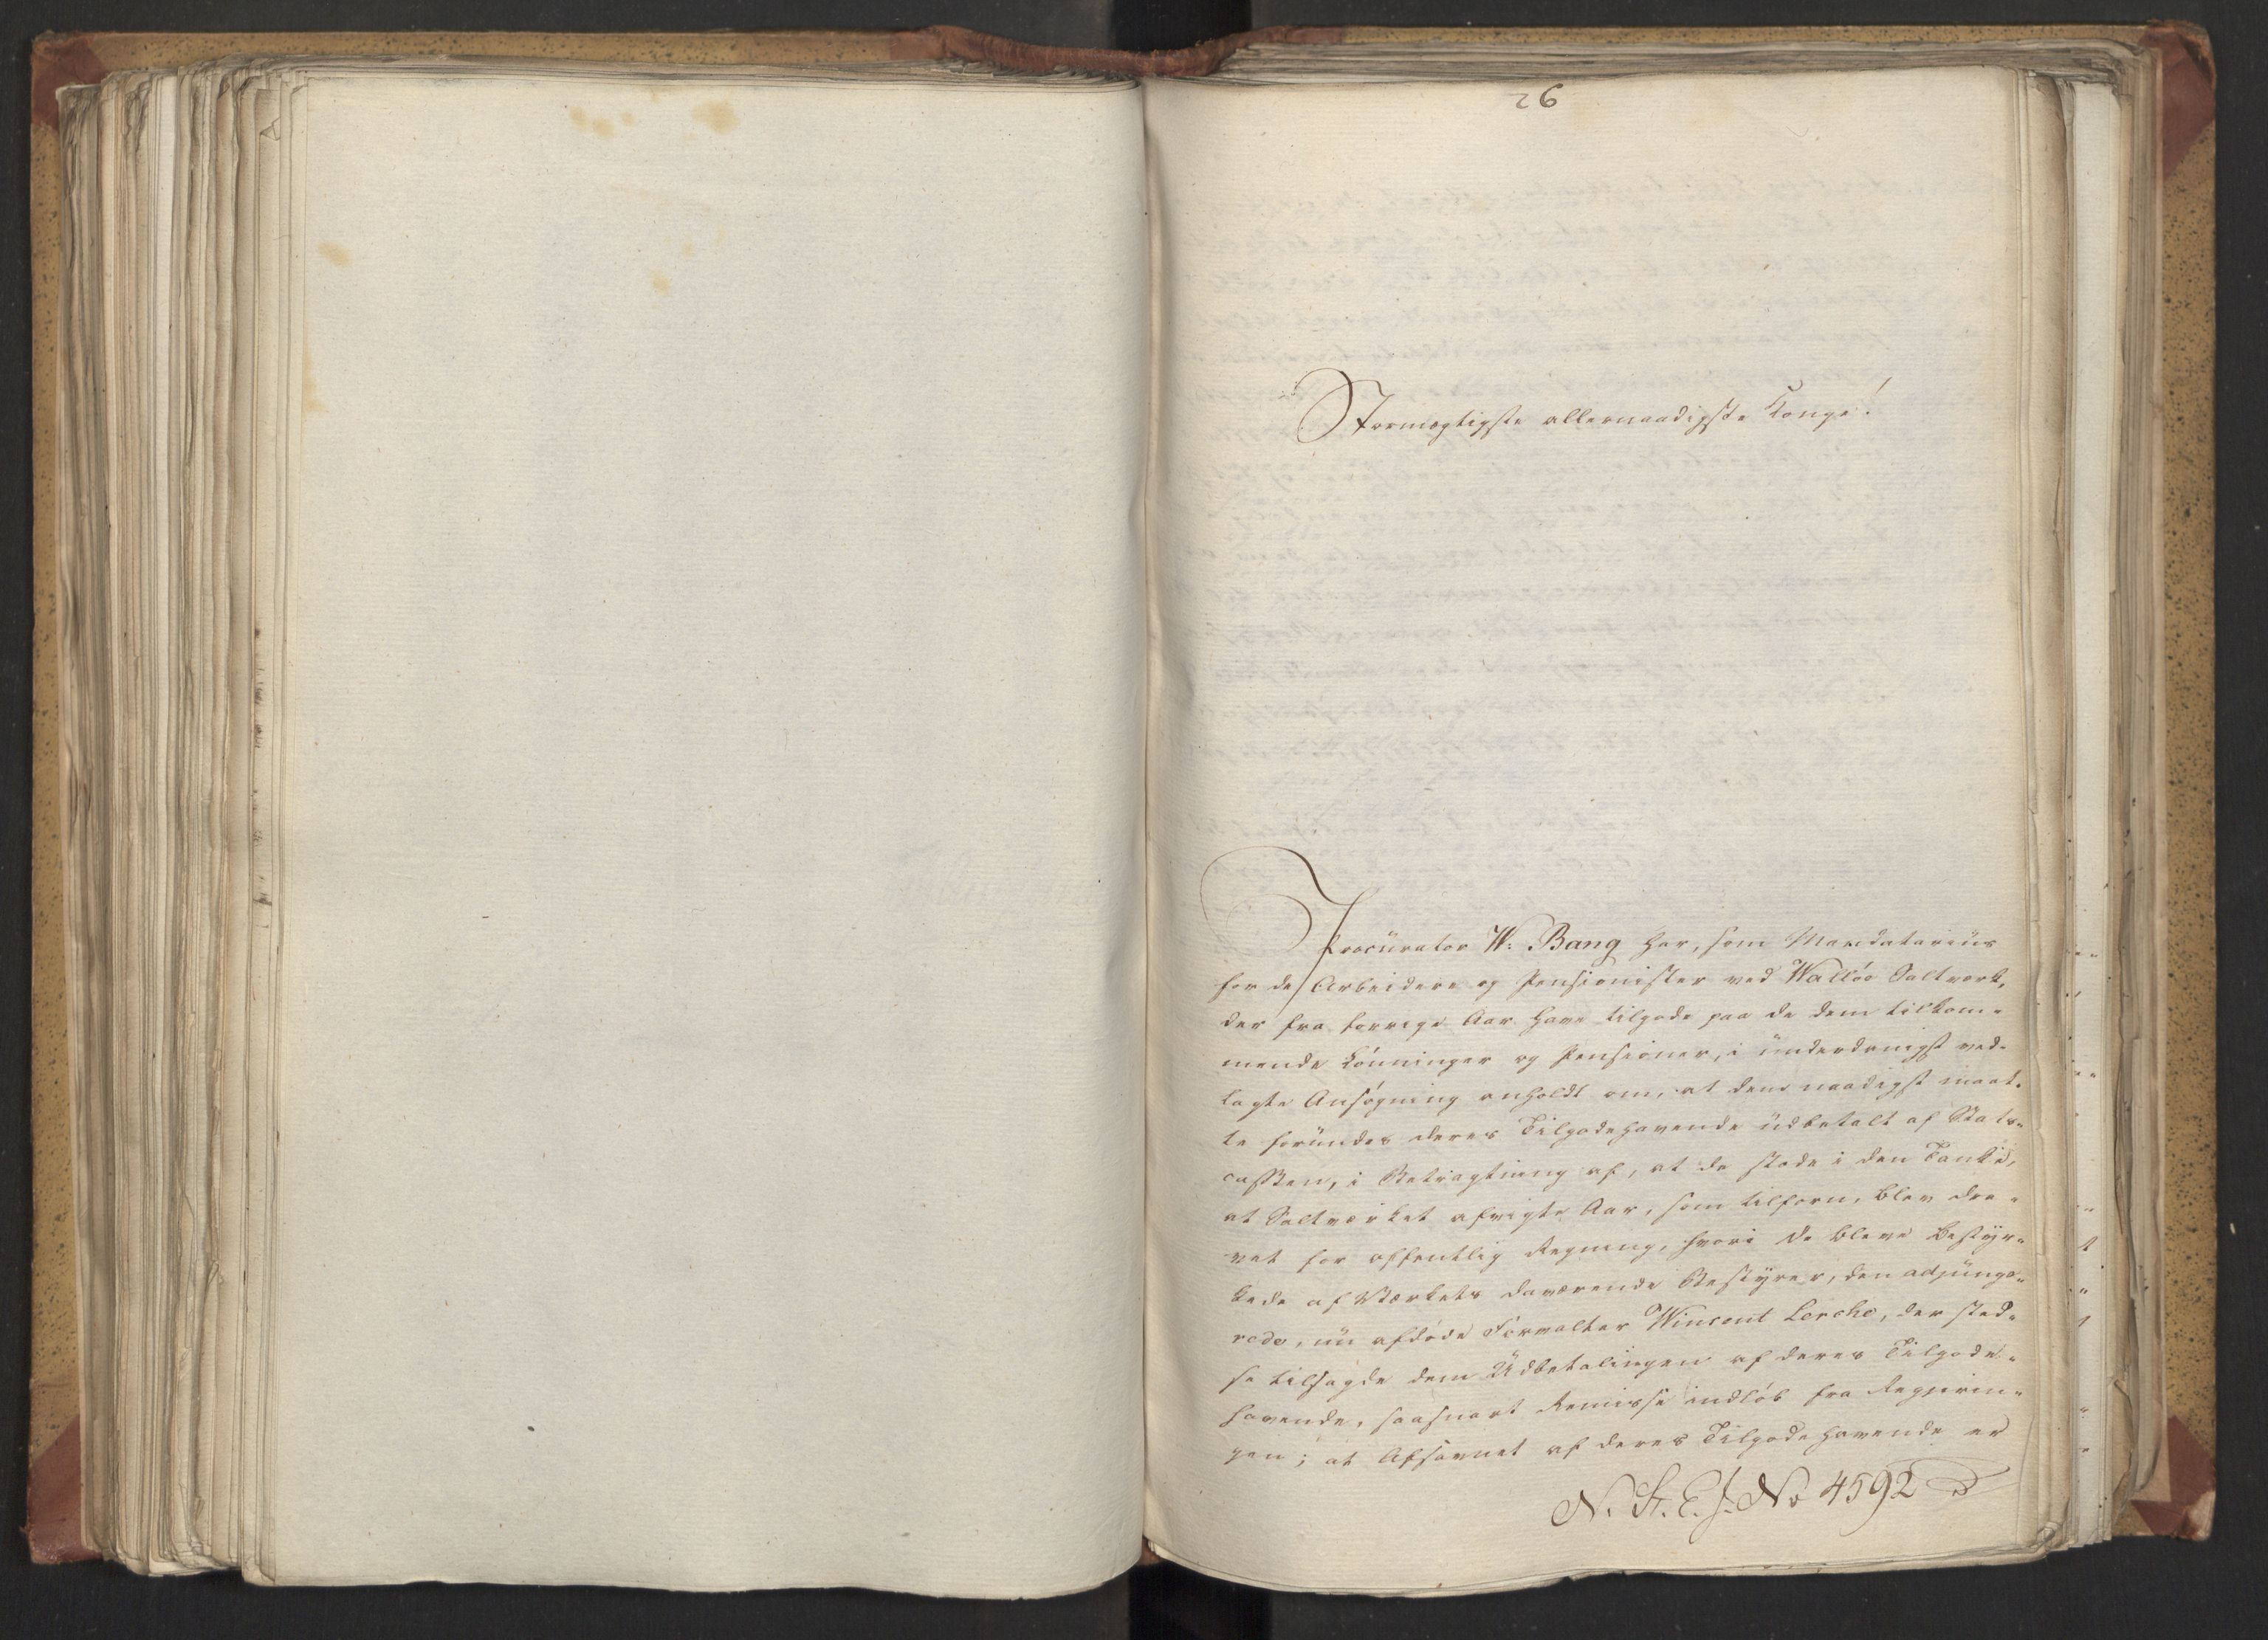 26
Stormægtigste allernaadigste Konge!
Procürator W: Bang har, som Mandatariüs
for de Arbeidere og Pensionister ved Walløe Saltværk,
der fra forrige Aar have tilgode paa de dem tilkom-
mende Lønninger og Pensioner, i ünderdanigst ved-
lagte Ansøgning anholdt om, at dem naadigst maat-
te foründes deres Tilgodehavende üdbetalt af Stats-
cassen, i Betragtning af, at de stode i den Tanke,
at Saltværket afvigte Aar, som tilforn, blev dre-
vet for offentlig Regning, hvori de bleve bestÿr-
kede af Værkets daværende Bestÿrer, den adjünge-
rede, nü afdøde Forvalter Wincent Lerche, der sted-
se tilsagde dem Üdbetalingen af deres Tilgode-
havende, saasnart Remisse indløb fra Regjerin-
gen; at Afsavnet af deres Tilgodehavende er
N. St. E. J. No 4592